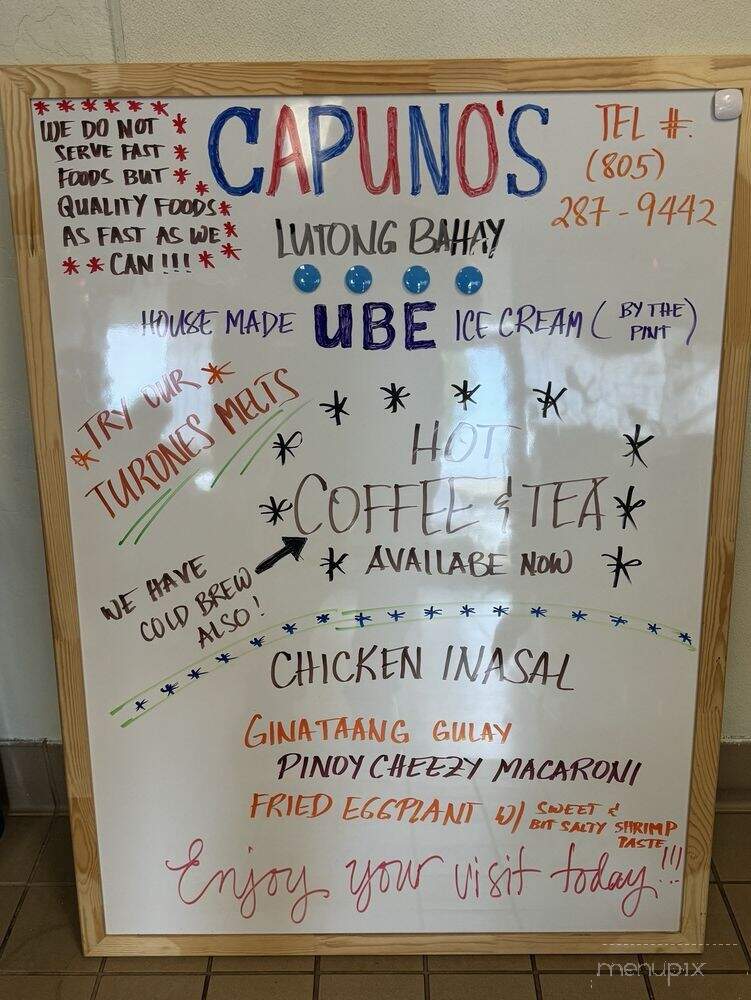 WE DO NOT
SERVE FAST
FOODS BUT
QUALITY FOODS
AS FAST AS WE
CAN!!!
CAPUNO'S
TEL #.
(805)
287-9442
LUTONG BAHAY
HOUSE MADE UBE ICE CREAM (BY THE
PINT)
TRY OUR
TURONES MELTS
HOT
COFFEE & TEA
AVAILABE NOW
WE HAVE
COLD BREW
ALSO!
CHICKEN INASAL
GINATAANG GULAY
PINOY CHEEZY MACARONI
FRIED EGGPLANT W/ SWEET &
BIT SALTY SHRIMP
PASTE
Enjoy your visit today!!!
menupix